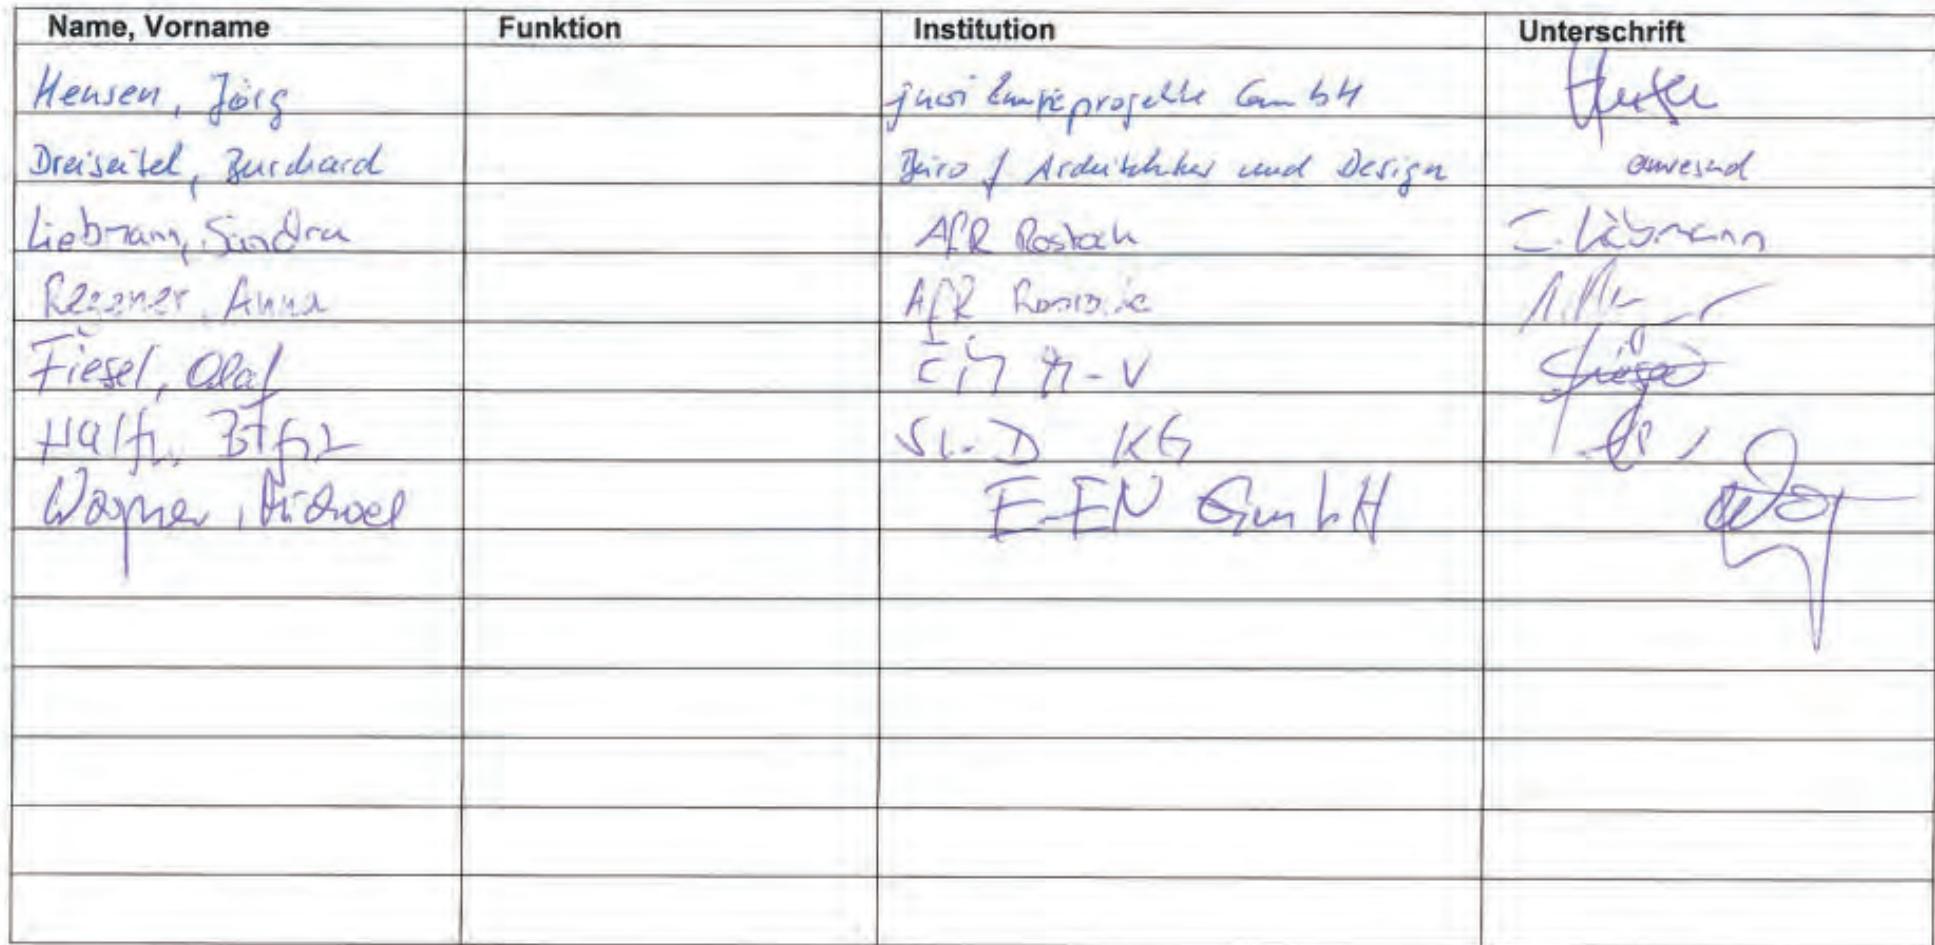 Name, Vorname Funktion Institution Unterschrift
Hensen, Jörg juwi Energieprojekte GmbH
Dreiseitel, Burchard Büro f Architektur und Design anwesend
Liebmann, Sandra AfR Rostock S. Liebmann
Anna AfR Rostock
Fiesel, Olaf EM M-V
KG
Wagner, Michael E-EN GmbH